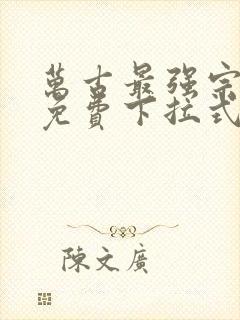 萬古最强宗
免費下拉式
陳文廣